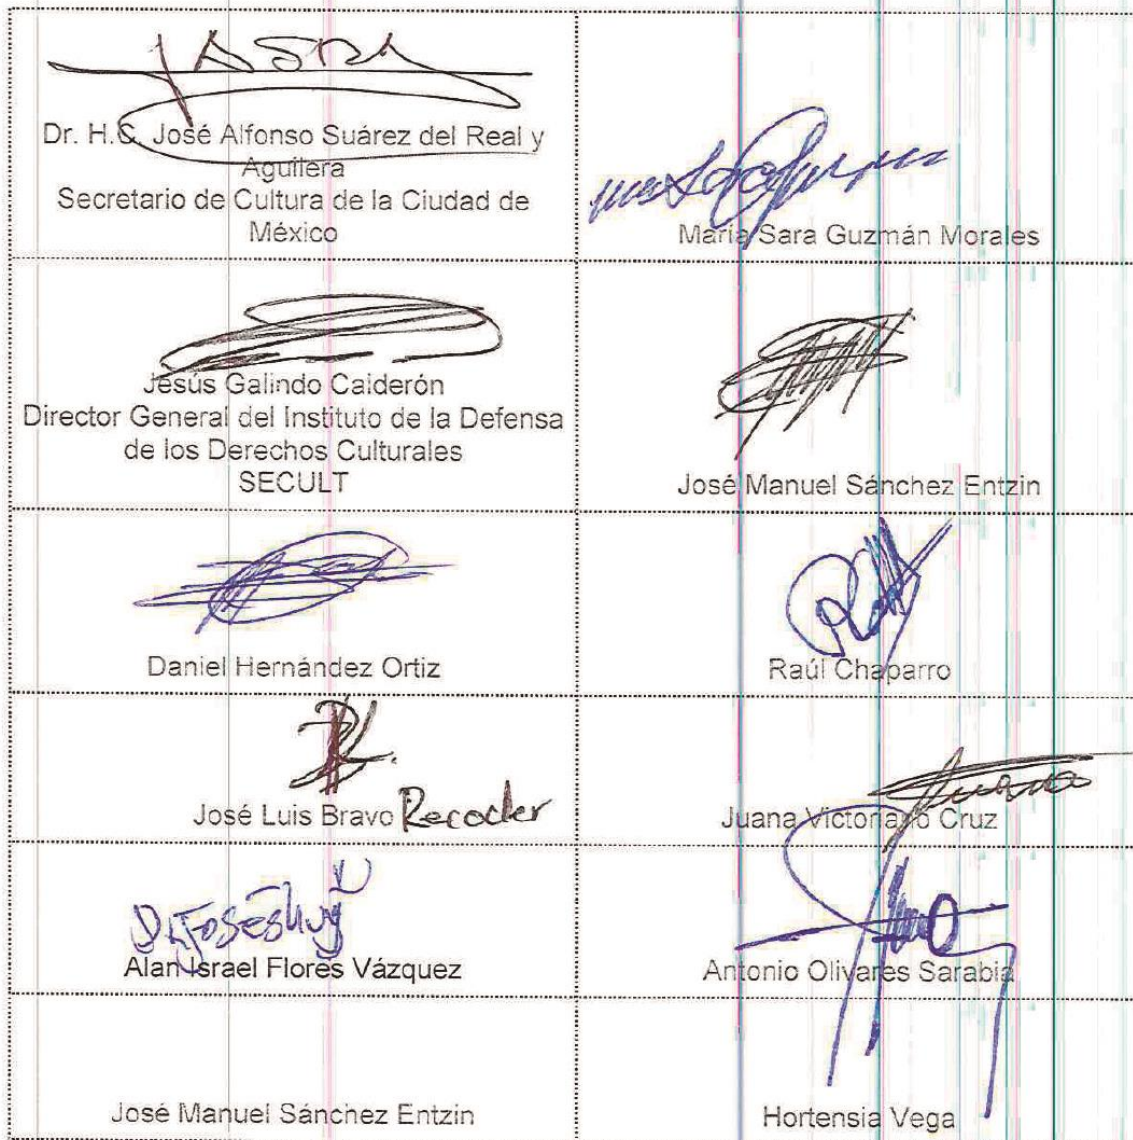 Dr. H.C. José Alfonso Suárez del Real y
Aguilera
Secretario de Cultura de la Ciudad de
México
María Sara Guzmán Morales
Jesús Galindo Calderón
Director General del Instituto de la Defensa
de los Derechos Culturales
SECULT
José Manuel Sánchez Entzin
Daniel Hernández Ortiz
Raúl Chaparro
José Luis Bravo Recoder
Juana Victoriano Cruz
Alan Israel Flores Vázquez
Antonio Olivares Sarabia
José Manuel Sánchez Entzin
Hortensia Vega